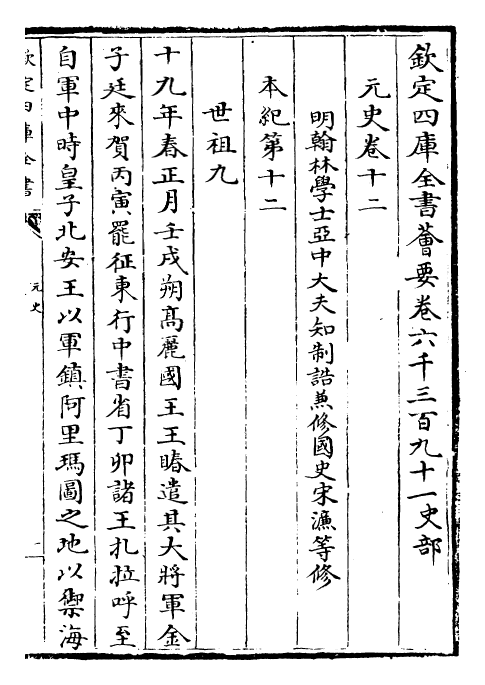 欽定四庫全書薈要卷六千三百九十一史部
元史卷十二
明翰林學士亞中大夫知制誥兼修國史宋濂等修
本紀第十二
世祖九
十九年春正月壬戌朔髙麗國王王睶遣其大將軍金
子廷來賀丙寅罷征東行中書省丁卯諸王札拉呼至
自軍中時皇子北安王以軍鎮阿里瑪圖之地以禦海
欽定四庫全書
元史